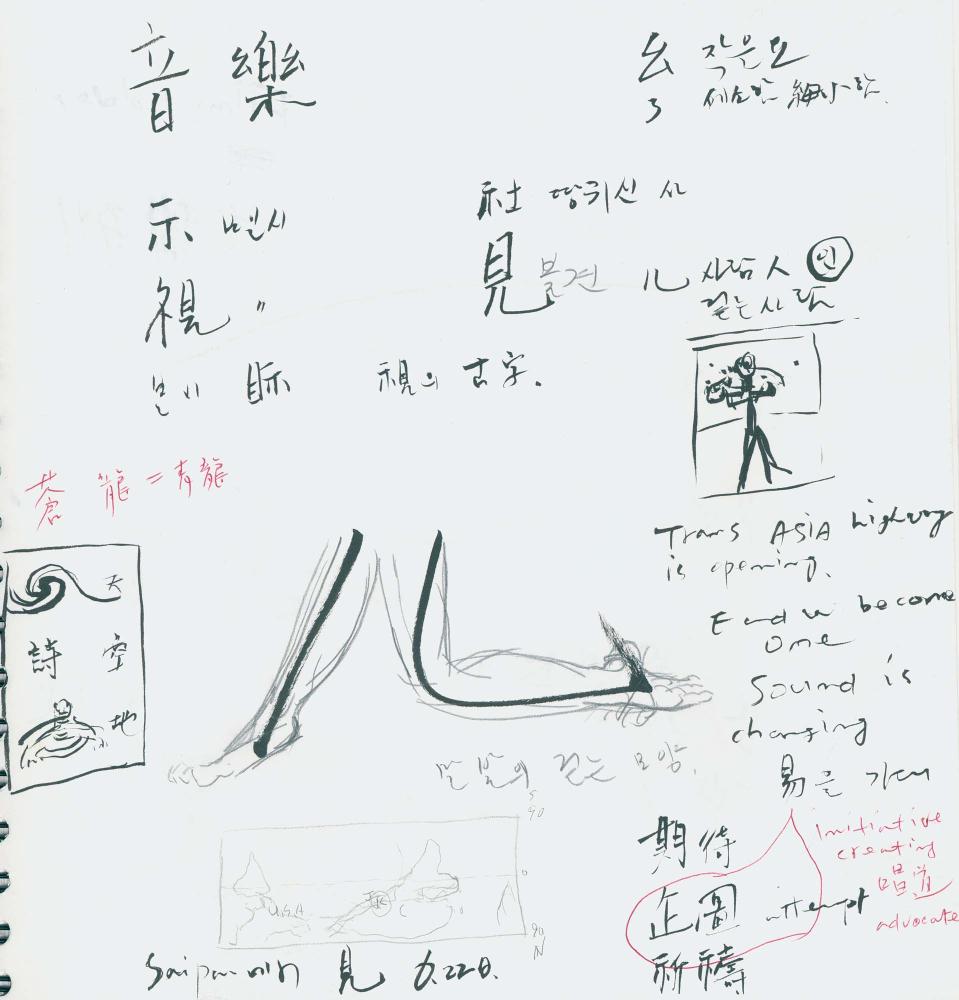 音 樂
幺 작은 요
세소할 細小할
示 보일시
社 땅귀신 사
視 〃
見 볼견 儿 사람人 인
걷는사람
보이 眎 視의 古字.
蒼龍=青龍
天
詩 空
地
Trans ASIA highway
is opening.
become
one
Sound is
changing
두 발의 걷는 모양.
易을 기대
S
90
0
U.S.A
K
C
90
N
期待
企圖 attempt
祈禱
initiative
creating
唱道
advocate
Saipan에서 見 6.22日.